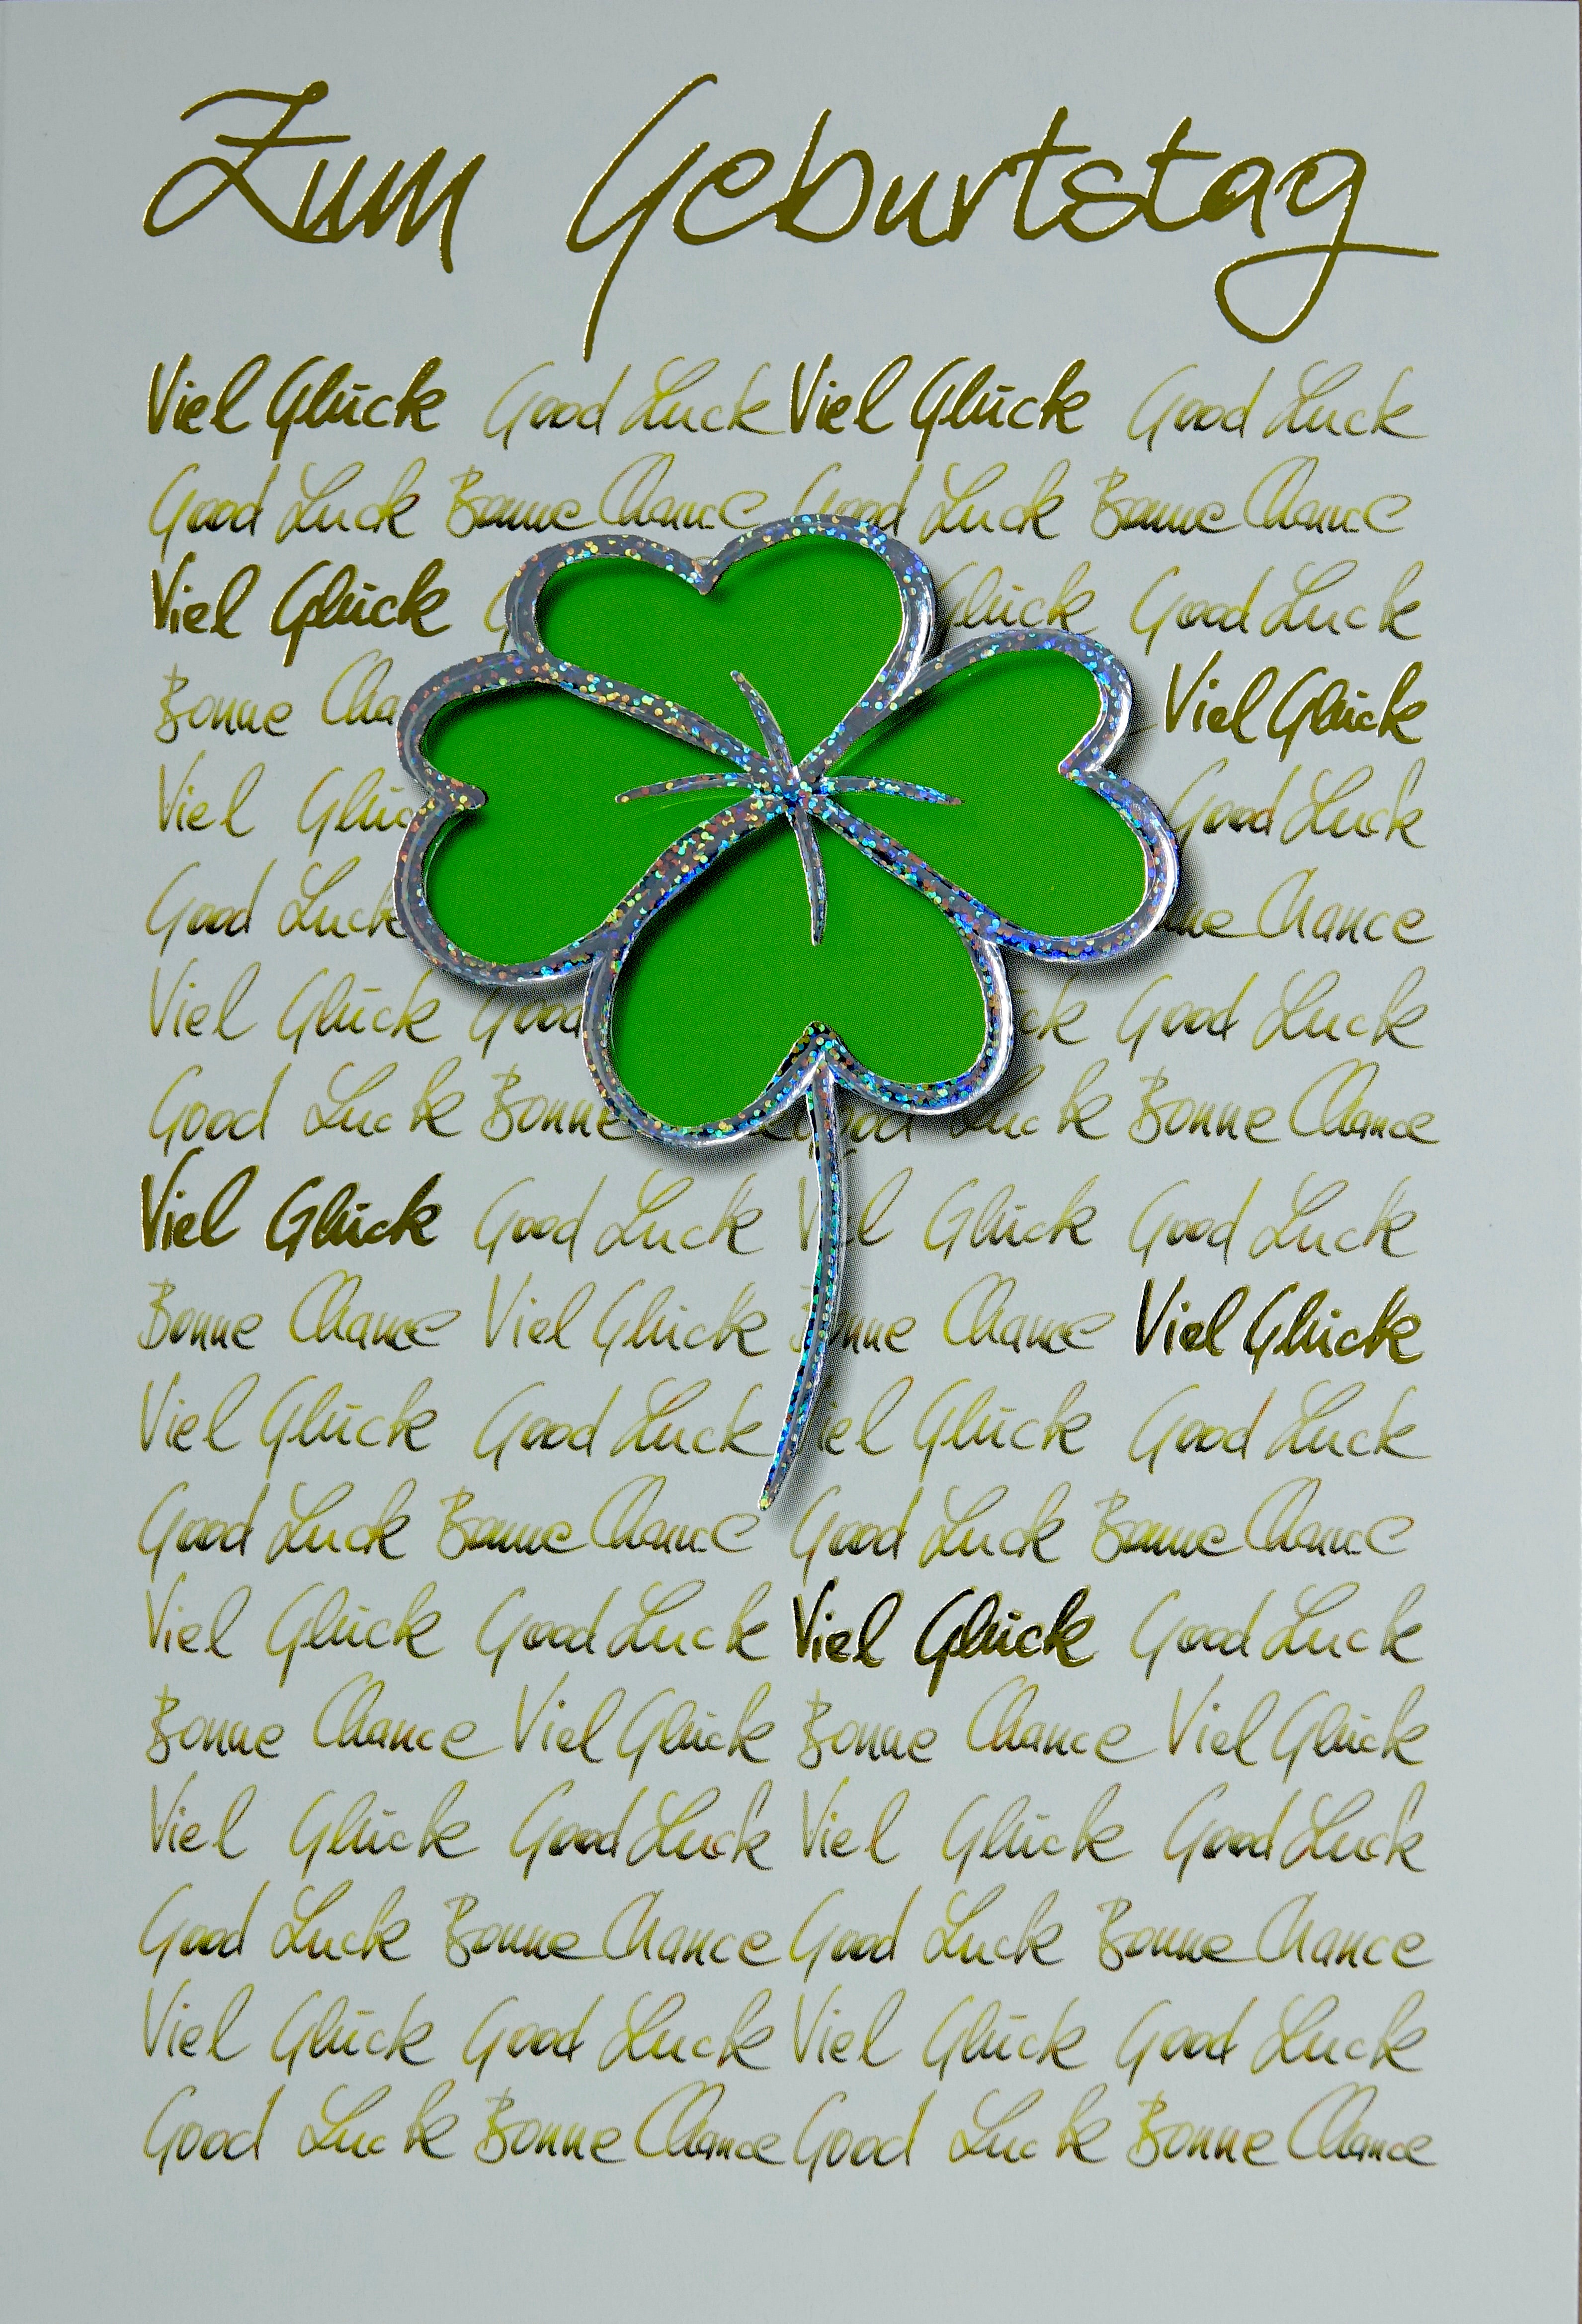 Zum Geburtstag
Viel Glück Good Luck Viel Glück Good Luck
Good Luck Bonne Chance Good Luck Bonne Chance
Viel Glück Glück Good Luck
Bonne Viel Glück
Viel Good Luck
Good Luck Chance
Viel Glück Good Good Luck
Good Luck Bonne Good Luck Bonne Chance
Viel Glück Good Luck Viel Glück Good Luck
Bonne Chance Viel Glück Bonne Chance Viel Glück
Viel Glück Good Luck Viel Glück Good Luck
Good Luck Bonne Chance Good Luck Bonne Chance
Viel Glück Good Luck Viel Glück Good Luck
Bonne Chance Viel Glück Bonne Chance Viel Glück
Viel Glück Good Luck Viel Glück Good Luck
Good Luck Bonne Chance Good Luck Bonne Chance
Viel Glück Good Luck Viel Glück Good Luck
Good Luck Bonne Chance Good Luck Bonne Chance